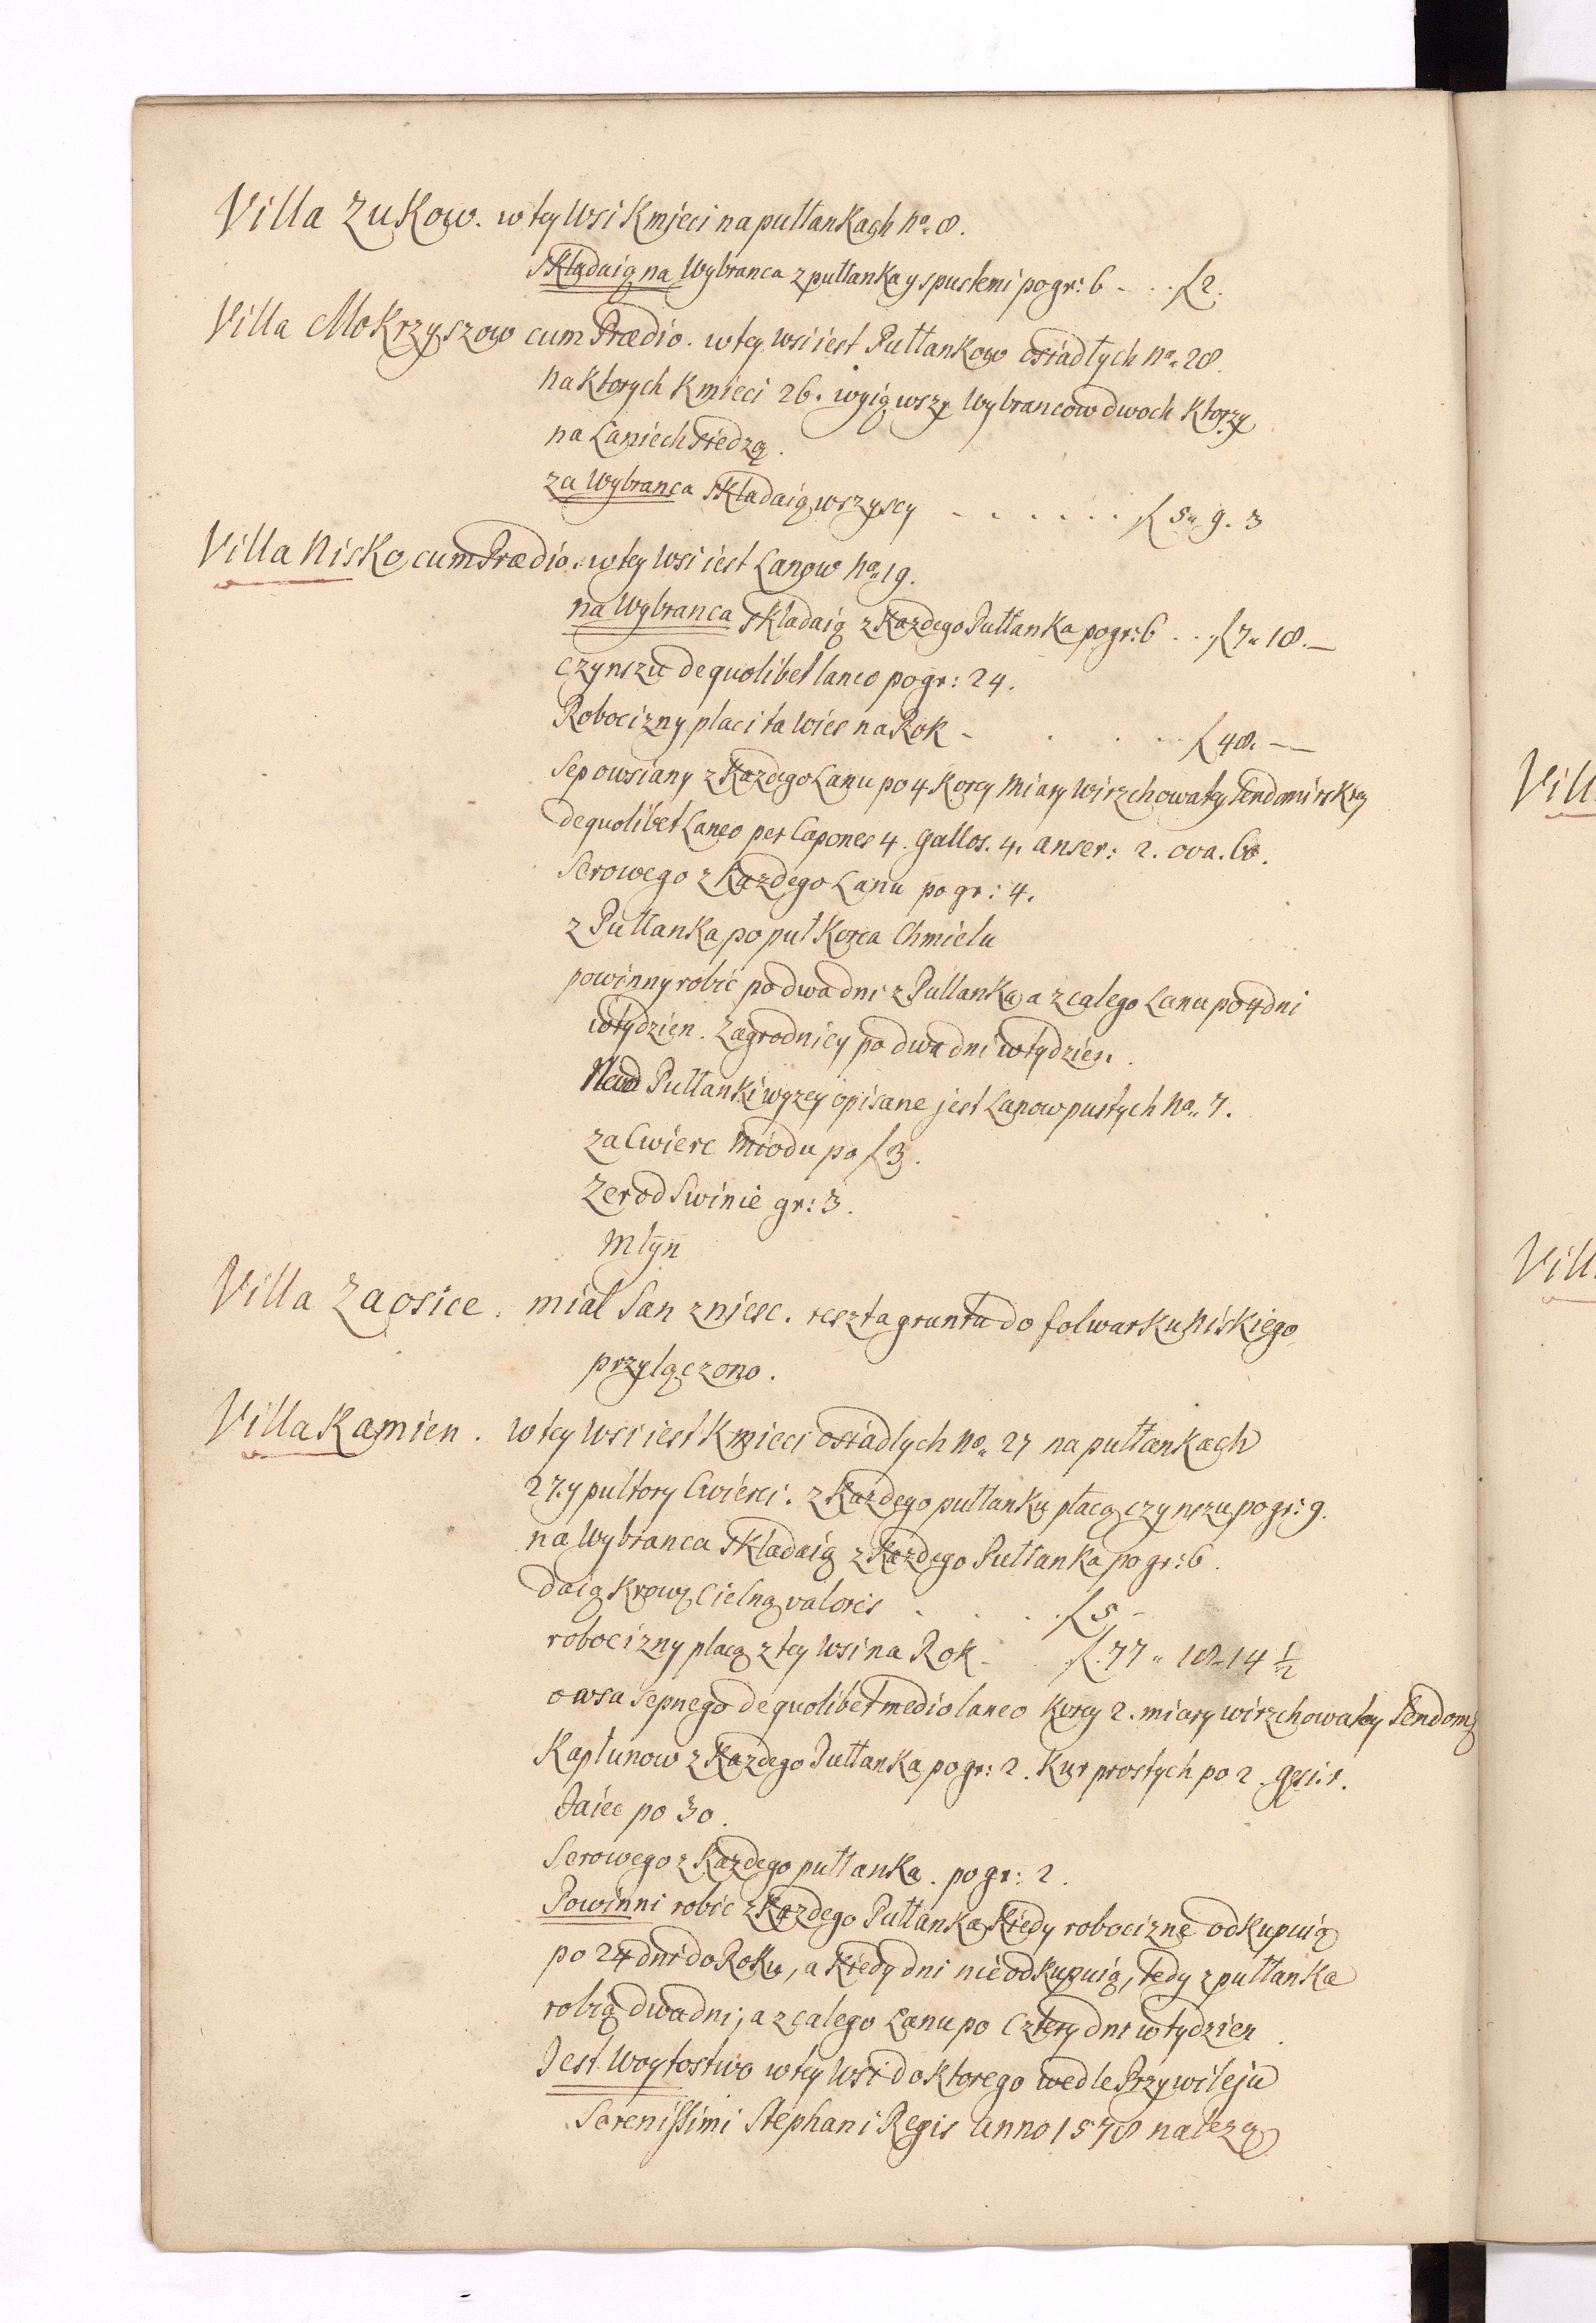 Villa Zukow. w tey Wsi Kmieci na pułłankach No. 8.
Składaią na Wybranca z pułłanka y z pustemi po gr: 6 - . . . f 2.
Villa Mokrzyszow cum Prædio. w tey wsi iest Pułłankow osiadłych No. 28.
na ktorych Kmieci 26. wyiąwszy Wybrancow dwoch ktorzy
na Laniech siedzą.
za Wybranca składaią wszyscy - . . . . . f 5 „ 9. 3
Villa Nisko cum Prædio. w tey Wsi iest Lanow No. 19.
na Wybranca składaią z Kazdego Pułłanka po gr: 6 . . f 7 „ 18. —
czynszu de quolibet laneo po gr: 24.
Robocizny placi ta Wies na Rok - . . . . f 48. —
Sep owsiany z Kazdego Lanu po 4 Korcy Miary Wirzchowatey Sendomirskiey
de quolibet Laneo per Capones 4. Gallos. 4. anser: 2. ova. 60.
Serowego z Kazdego Lanu po gr: 4.
z Pułłanka po puł Korca Chmielu
powinny robic po dwa dni z Pułłanka, a z calego Lanu po 4 dni
w tydzien. Zagrodnicy po dwa dni w tydzien.
Nad Pułłanki wyzey opisane jest Lanow pustych No. 7.
za Cwierc Miodu po f 3.
Zer od Swinie gr: 3.
Młyn
Villa Zaosice. mial San zniesc. reszta gruntu do folwarku Niskiego
przylączono.
Villa Kamien. w tey Wsi iest Kmieci osiadlych No. 27 na pułłankach
27. y pułtory Cwierci. z Kazdego pułłanku płacą czynszu po gr: 9.
na Wybranca składaią z Kazdego Pułłanka po gr: 6.
daią Krowę Cielną valoris . . . . f 5 -
robocizny placą z tey Wsi na Rok - . f. 77 „ 18 „ 14 ½
owsa sepnego de quolibet medio laneo Korcy 2. miary wirzchowatey Sendom:
Kapłunow z Kazdego Pułłanka po gr: 2. Kur prostych po 2. gęsi: 1.
Jaiec po 30.
Serowego z Kazdego pułłanka. po gr: 2.
Powinni robic z Kazdego Pułłanka Kiedy robociznę odkupuią
po 24 dni do Roku, a Kiedy dni nie odkupuią, tedy z pułłanka
robią dwa dni; a z calego Lanu po Cztery dni w tydzien.
Jest Woytostwo w tey Wsi do ktorego wedle Przywileju
Serenissimi Stephani Regis anno 1578 należą
Vill
Vill